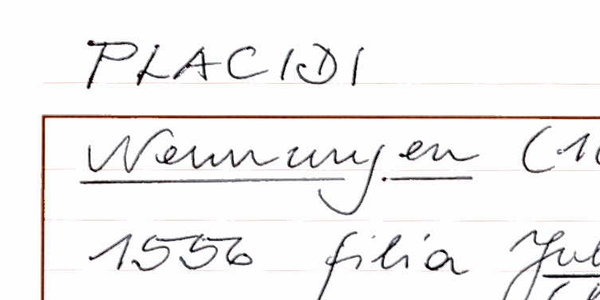 PLACIDI
Nennungen (10
1556 filia Jul